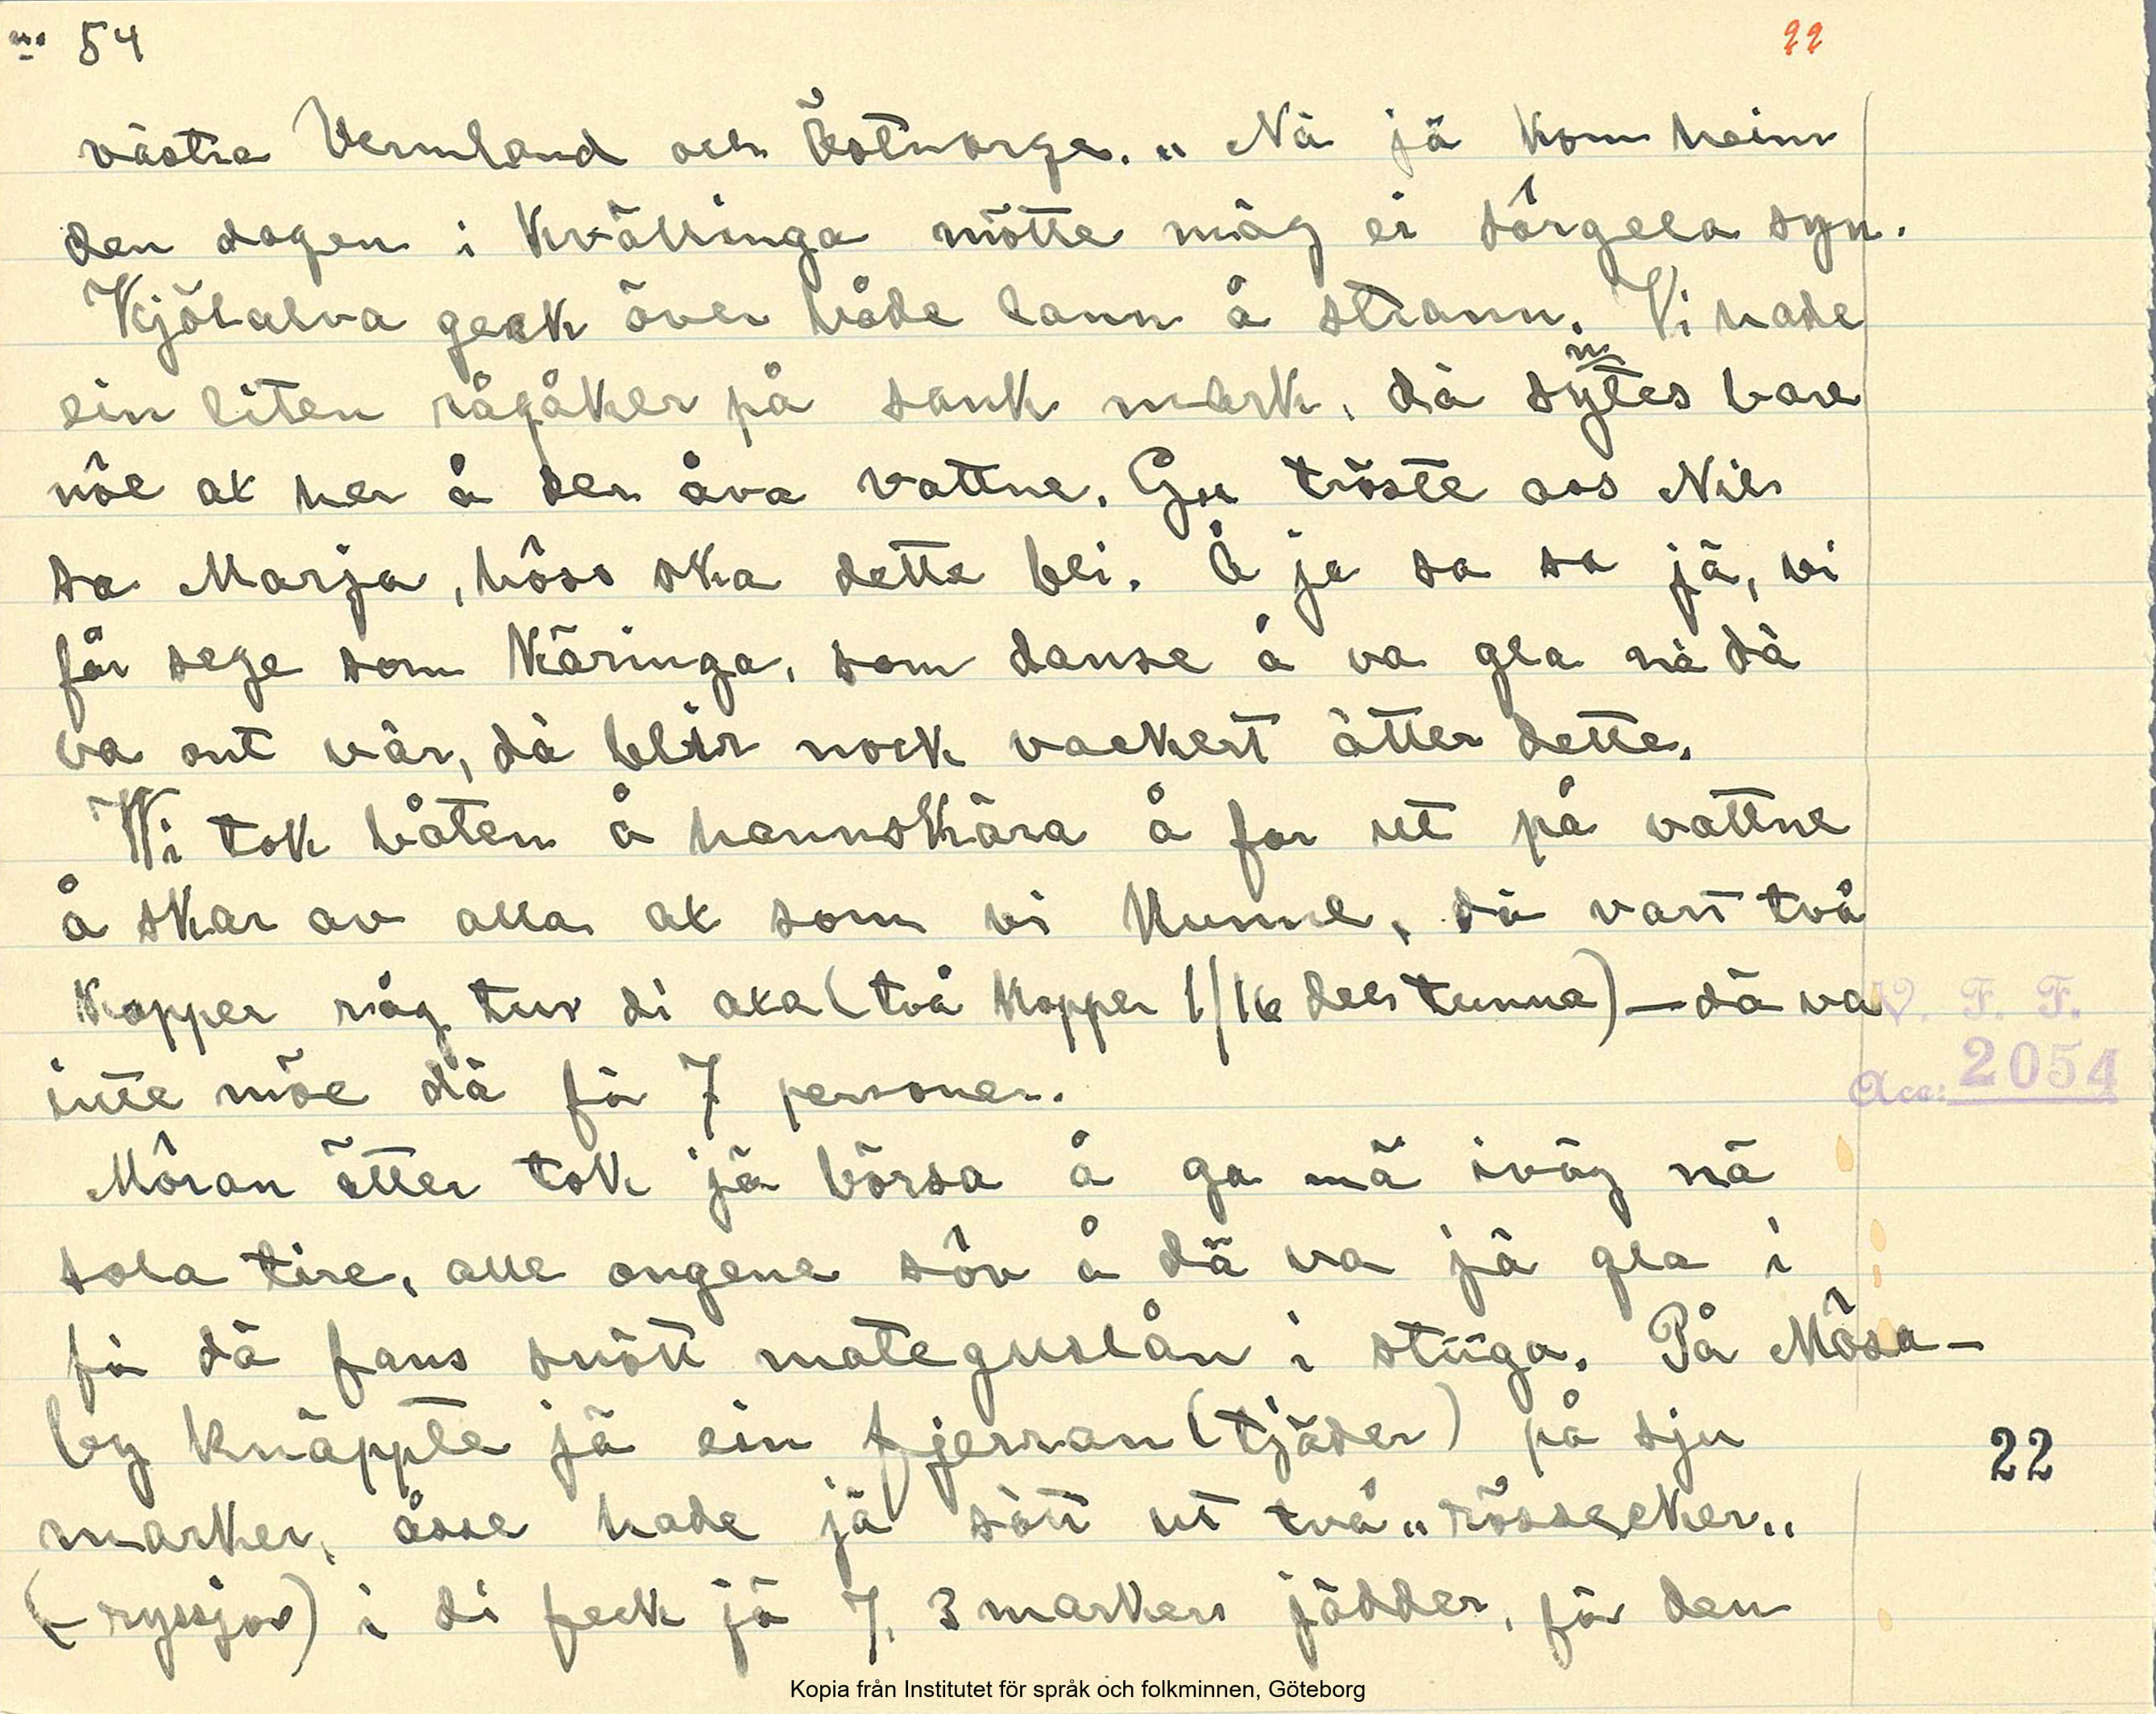 54
22
västra Vermland och Östnorge. „ Nä jä kom heim
den dagen i kvällinga mötte mäg ei sôrgela syn.
Kjölalva geck över både lann å strann. Vi hade
ein liten rågåker på sank mark, dä syntes bare
nôe ax her å der åva vattne. Gu tröste oos Nils
sa Marja, hôss ska dette bli. Å ja sa sa jä, vi
får sege som Käringa, som danse å va gla nä dä
va ont vär, dä blir nock vackert ätter dette.
Wi tok båten å hannskära å for ut på vattne
å skar av alla ax som vi kunne, dä vart två
kapper råg tur di axa (två kapper 1/16 dels tunna) — dä va
inte möe dä för 7 personer.
Môran ätter tok jä börsa å ga mä iväg nä
sola tire, alle ongene sôv å dä va jä gla i
för dä fans snött mateguslån i stüga. På Môsa-
by knäppte jä ein fjerran (tjäder) på sju
marker, åsse hade jä sött ut två „rössecker„
(-ryssjor) i di feck jä 7, 3 markers jädder, för den
V. F. F.
Acc: 2054
22
Kopia från Institutet för språk och folkminnen, Göteborg